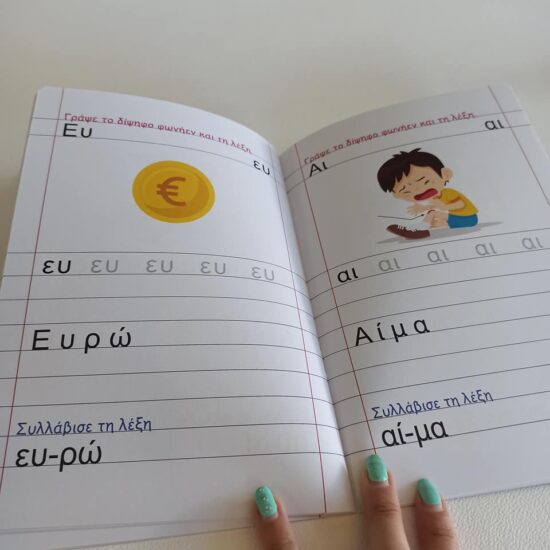 Γράψε το δίψηφο φωνήεν και τη λέξη
Ευ ευ
€
ευ ευ ευ ευ ευ
Ευρώ
Συλλάβισε τη λέξη
ευ-ρώ
Γράψε το δίψηφο φωνήεν και τη λέξη
Αι αι
αι αι αι αι αι
Αίμα
Συλλάβισε τη λέξη
αί-μα